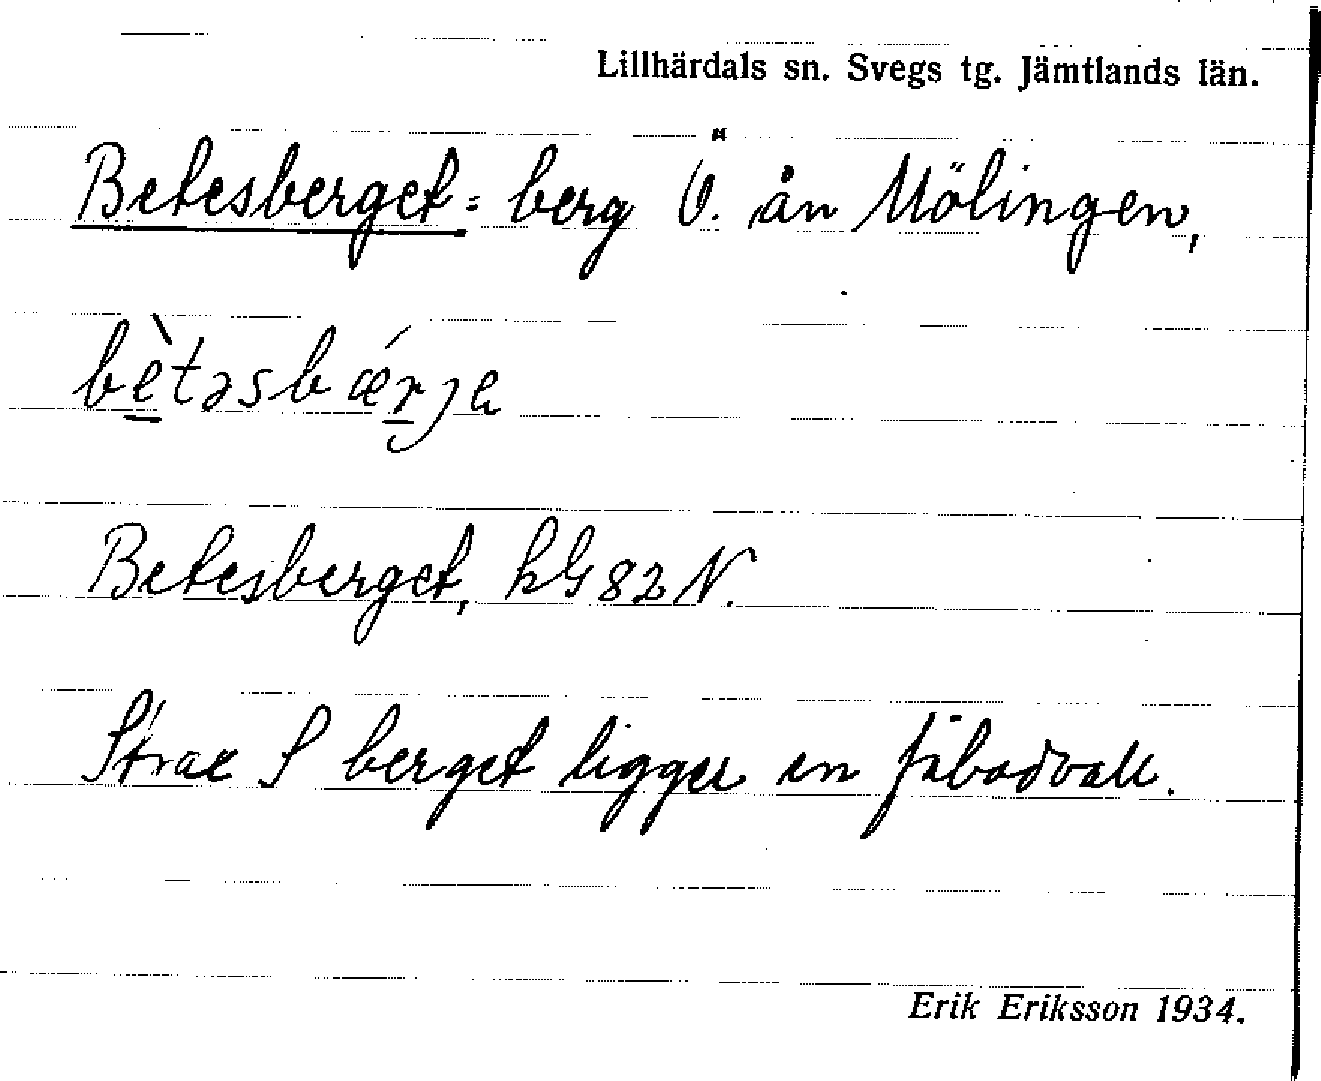 Lillhärdals sn. Svegs tg. Jämtlands län.
Betesberget = berg Ö. ån Mölingen,
bètəsbǽrje
Betesberget, hG 82 N.
Strax S berget ligger en fäbodvall.
Erik Eriksson 1934.